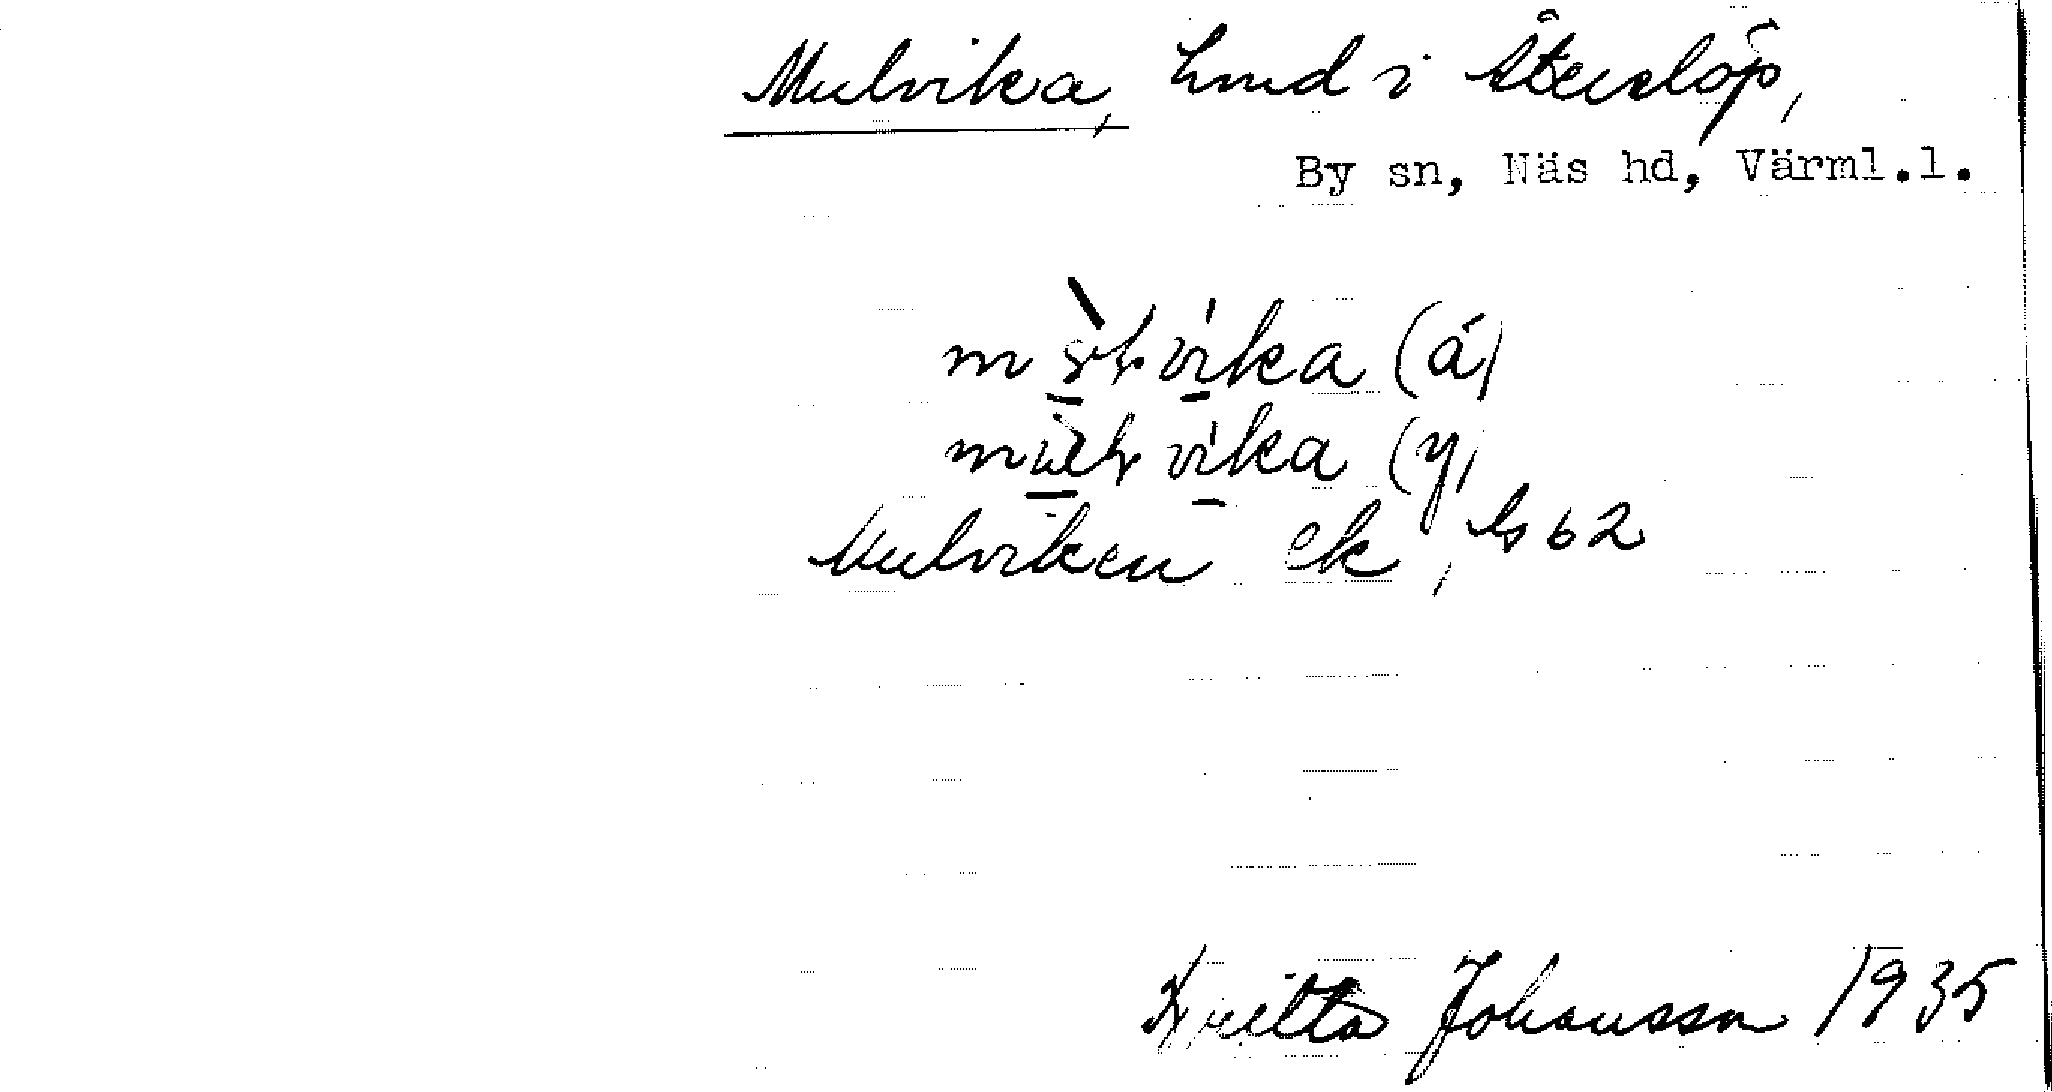 Mulvika, hmd i Återlöp,
By sn, Näs hd, Värml.l.
vika (á)
vika (y)
Mulviken ek, ls 62
Britta Johansson 1935